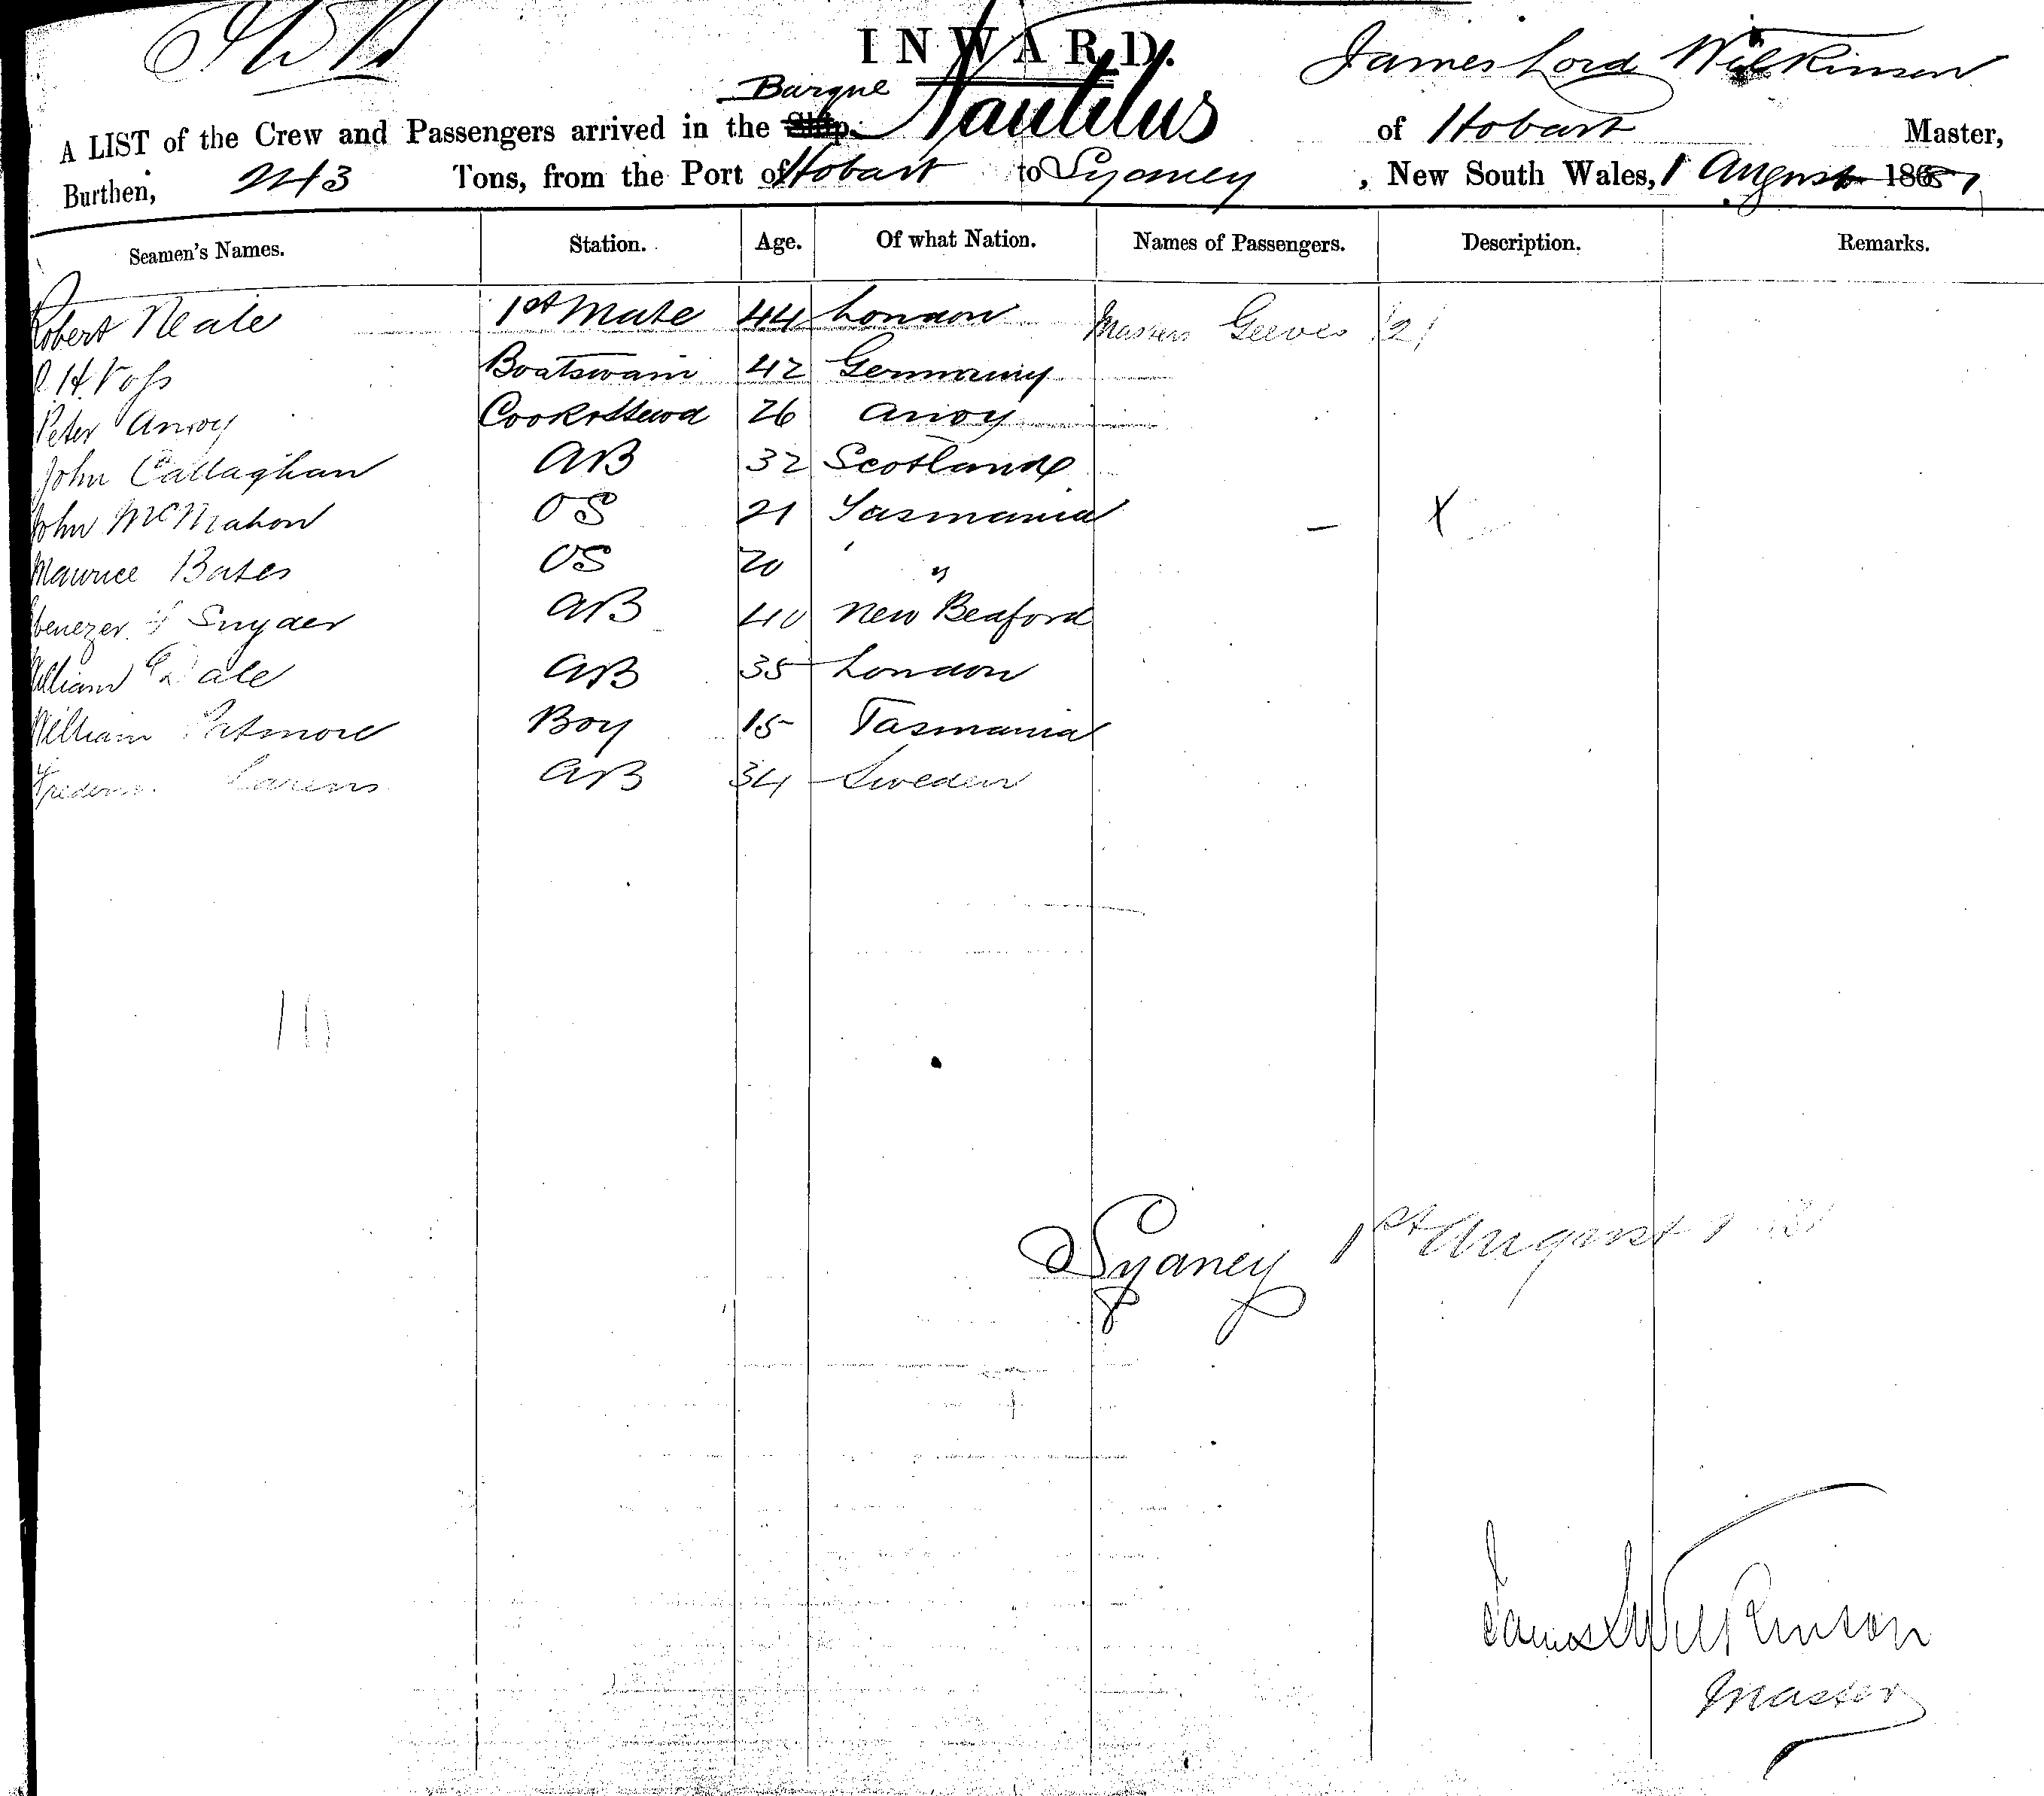 INWARD.
James Lord Wilkinson
Barque
A LIST of the Crew and Passengers arrived in the Ship Nautilus of Hobart Master,
Burthen, 243 Tons, from the Port of Hobart to Sydney, New South Wales, 1 August 186
Seamen's Names. Station. Age. Of what Nation. Names of Passengers. Description. Remarks.
Robert Neale 1st Mate 44 London Masters Geeves (2)
H Voss Boatswain 42 Germany
Peter Amoy Cook & Stewd 26 Amoy
John Callaghan AB 32 Scotland
John McMahon OS 21 Tasmania — X
Maurice Bates OS 20 " "
Ebenezer Snyder AB 40 New Bedford
William Dale AB 35 London
William Patmore Boy 15 Tasmania
AB 34 Sweden
10
Sydney 1st August
James L Wilkinson
Master